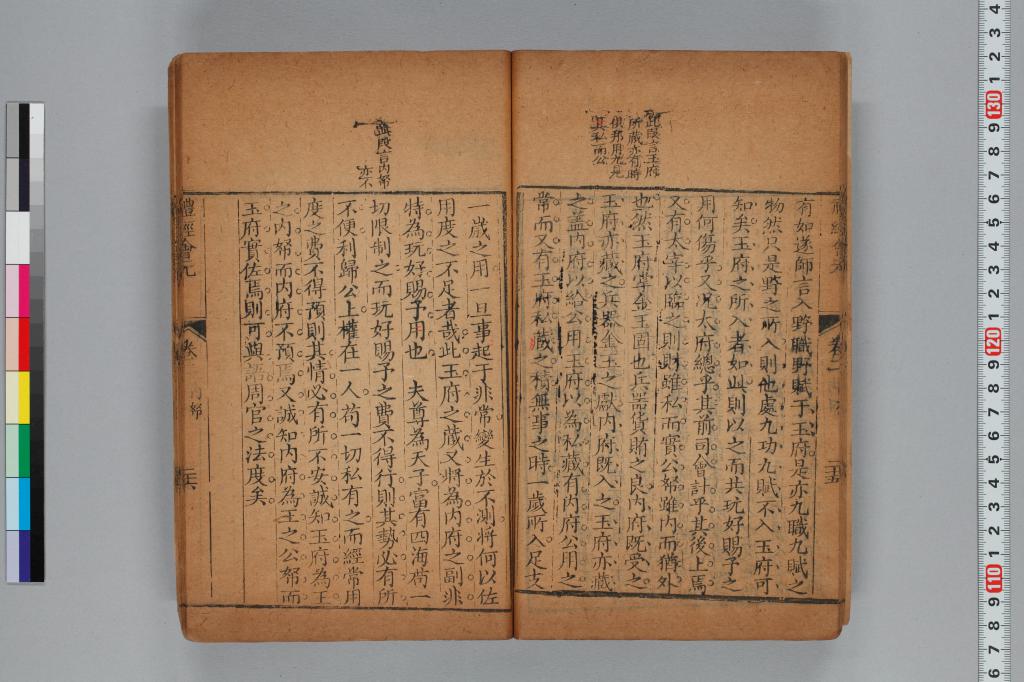 此段言玉府
所藏亦有時
供邦用九見
其私而公
有如遂師言入野職野賦于玉府是亦九職九賦之
物然只是野之所入則他處九功九賦不入玉府可
知矣玉府之所入者如此則以之而共玩好賜予之
用何傷乎又況太府總乎其前司會計乎其後上焉
又有太宰以臨之則財雖私而實公帑雖內而猶外
也然玉府掌金玉固也兵器貨賄之良內府既受之
玉府亦藏之兵器金玉之獻內府既入之玉府亦藏
之蓋內府以給公用玉府以為私藏有內府公用之
常而又有玉府私藏之積無事之時一歲所入足支
此段言內帑
亦不
一歲之用一旦事起于非常變生於不測將何以佐
用度之不足者哉此玉府之藏又將為內府之副非
特為玩好賜予用也 夫尊為天子富有四海苟一
切限制之而玩好賜予之費不得行則其勢必有所
不便利歸公上權在一人苟一切私有之而經常用
度之費不得預則其情必有所不安誠知玉府為王
之內帑而內府不預焉又誠知內府為王之公帑而
玉府實佐焉則可與語周官之法度矣
禮經會元
卷一
內帑
二十六